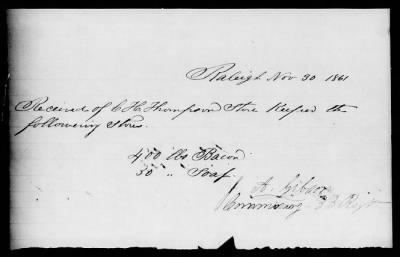 Raleigh Nov 30 1861
Received of C H Thompson Store Keeper the
following Stores.
400 lbs Bacon
50 " Soap
A. Gibson
Commissary 33 Regt